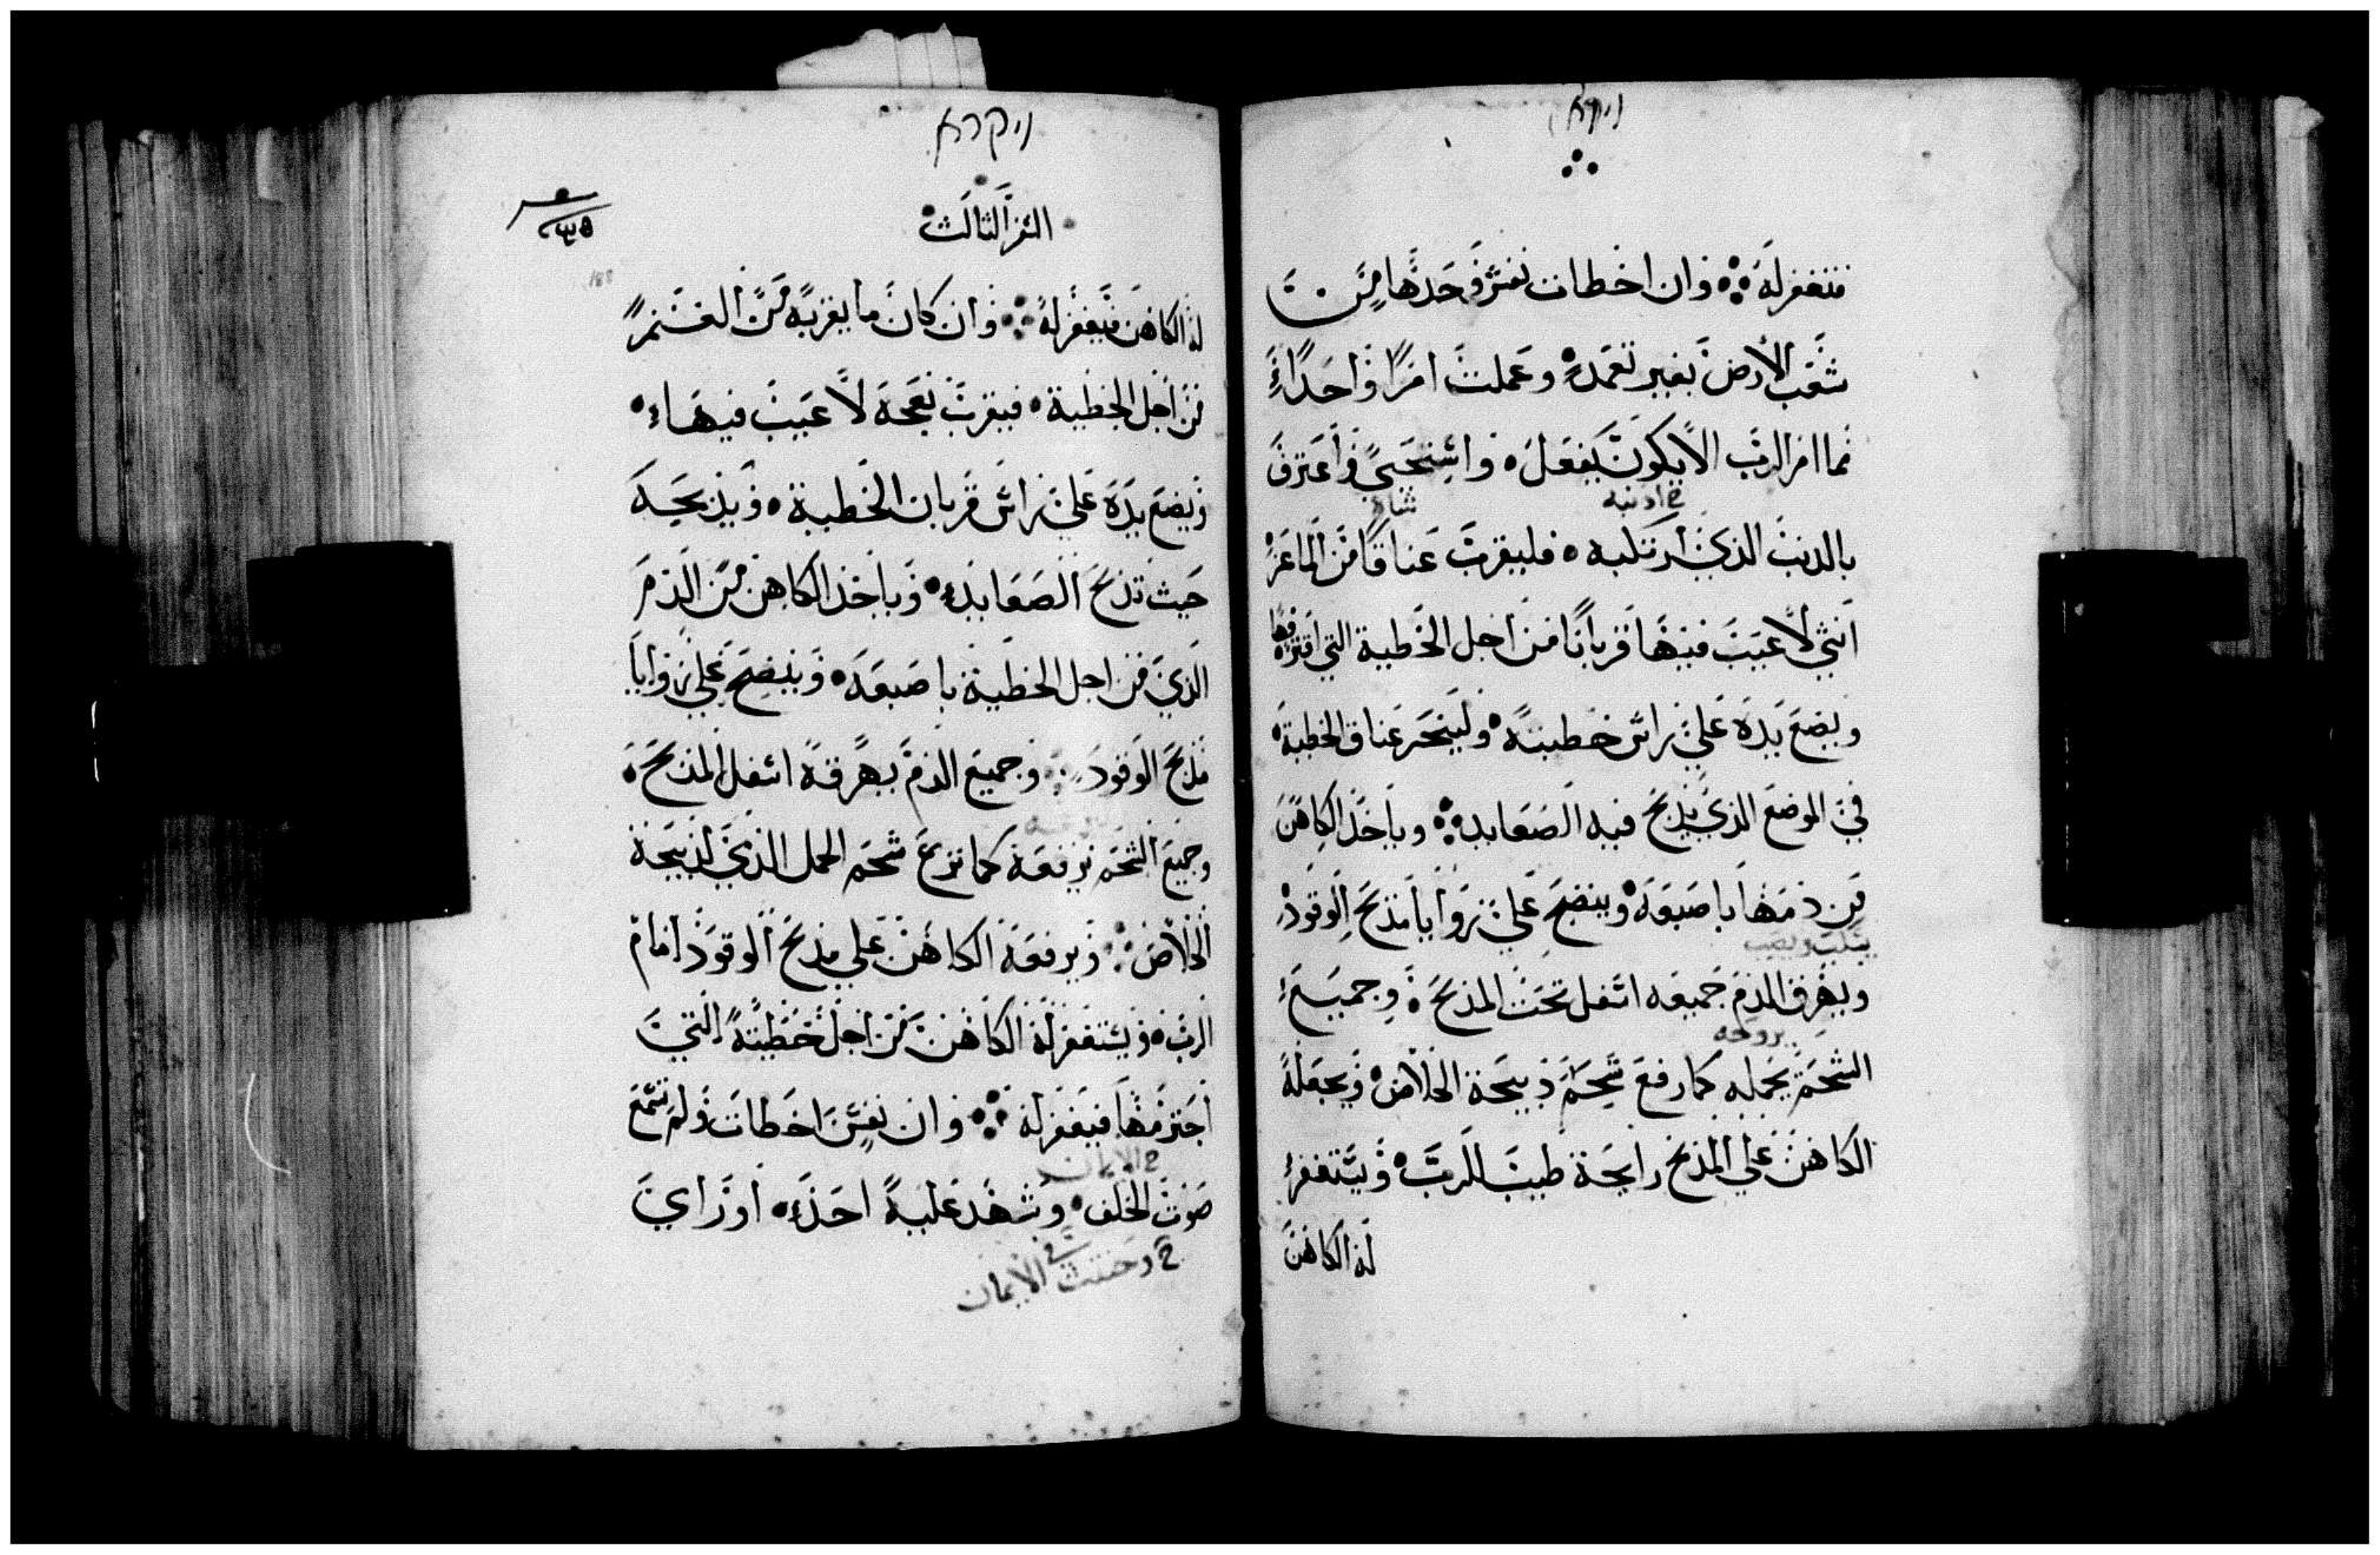 ויקרא
فتغفر له وان اخطات نفس وحدها من
شعب الارض بغير تعمد وعملت امرا واحدا
مما امر الرب الا يكون يفعل واستحيي واعترف
بالدنب الذي ارتكبه فليقرب عناقا من الماعز
انثي لا عيب فيها قربانا من اجل الخطية التي اقترفها
ويضع يده علي راس خطيته ولينحر عناق الخطية
في الموضع الذي يذبح فيه الصعايد وياخذ الكاهن
من دمها باصبعه وينضح علي زوايا مذبح الوقود
ويهرق الدم جميعه اسفل تحت المذبح وجميع
الشحم يحمله كما رفع شحم ذبيحة الخلاص ويجعله
الكاهن علي المذبح رايحة طيب للرب ويستغفر
له الكاهن
ויקרא
السفر الثالث
188
له الكاهن فيغفر له وان كان ما يقربه من الغنم
من اجل الخطية فيقرب نعجة لا عيب فيها
ويضع يده علي راس قربان الخطية ويذبحه
حيث تذبح الصعايد وياخذ الكاهن من الدم
الذي من اجل الخطية باصبعه وينضح علي زوايا
مذبح الوقود وجميع الدم يهرقه اسفل المذبح
وجميع الشحم يرفعه كما نزع شحم الحمل الذي لذبيحة
الخلاص ويرفعه الكاهن علي مذبح الوقود امام
الرب ويستغفر له الكاهن من اجل خطيته التي
اجترمها فيغفر له وان نفس اخطات ولم تسمع
الايمان
صوت الحلف وشهد عليه احد او راي
الايمان